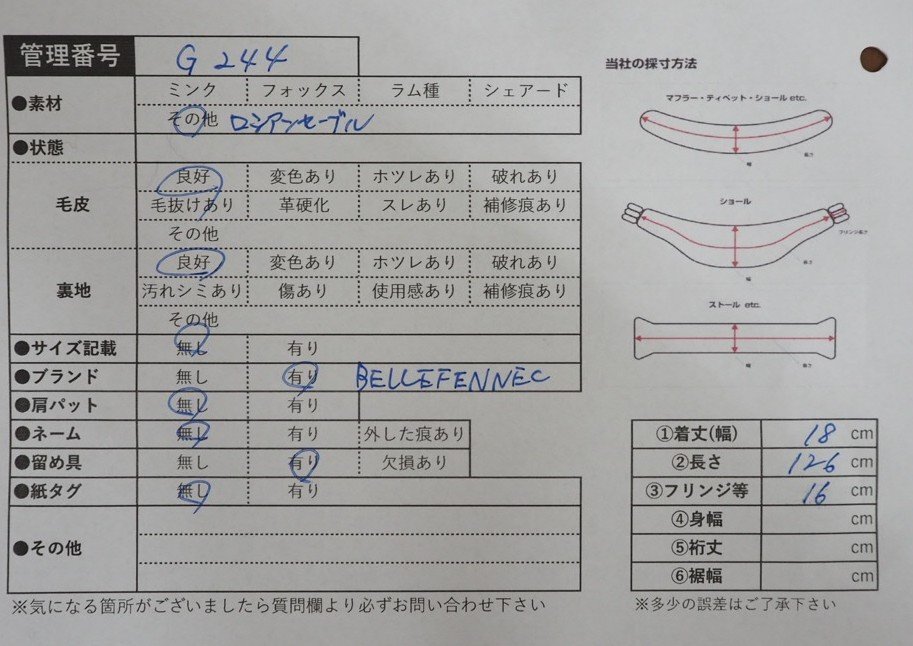 管理番号 G 244
●素材 ミンク フォックス ラム種 シェアード
その他 ロシアンセーブル
●状態
毛皮 良好 変色あり ホツレあり 破れあり
毛抜けあり 革硬化 スレあり 補修痕あり
その他
裏地 良好 変色あり ホツレあり 破れあり
汚れシミあり 傷あり 使用感あり 補修痕あり
その他
●サイズ記載 無し 有り
●ブランド 無し 有り BELLEFENNEC
●肩パット 無し 有り
●ネーム 無し 有り 外した痕あり
●留め具 無し 有り 欠損あり
●紙タグ 無し 有り
●その他
※気になる箇所がございましたら質問欄より必ずお問い合わせ下さい
当社の採寸方法
マフラー・ティペット・ショール etc.
幅
長さ
ショール
フリンジ長さ
幅
長さ
ストール etc.
幅
長さ
①着丈(幅) 18 cm
②長さ 126 cm
③フリンジ等 16 cm
④身幅 cm
⑤裄丈 cm
⑥裾幅 cm
※多少の誤差はご了承下さい